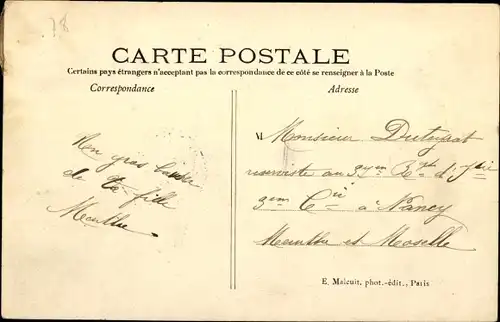 78
CARTE POSTALE
Certains pays étrangers n'acceptant pas la correspondance de ce côté se renseigner à la Poste
Correspondance
Adresse
de ta fille
M Monsieur
réserviste au 37em
3em Cie à Nancy
Meurthe et Moselle
E. Malcuit, phot.-édit., Paris